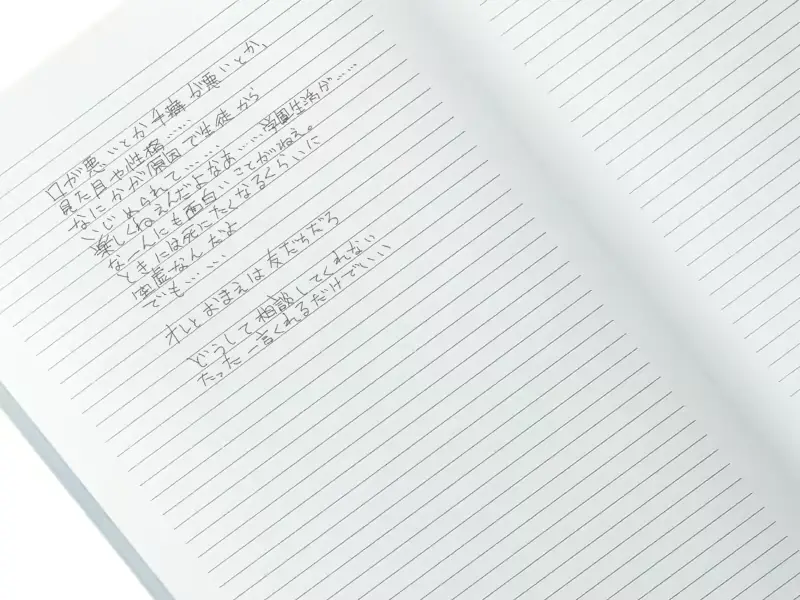 口が悪いとか手癖が悪いとか、
見た目や性格……
なにかが原因で生徒から
いじめられて………
楽しくねえんだよなあ……学園生活が……
なーんにも面白いことがねえ。
ときには死にたくなるくらいに
空虚なんだよ
でも……
オレとおまえは友だちだろ
どうして相談してくれない
たった一言くれるだけでいい